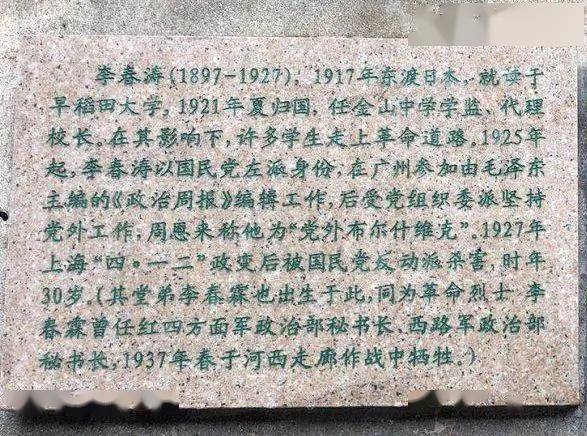 李春涛(1897-1927)，1917年东渡日本，就读于
早稻田大学，1921年夏归国，任金山中学学监、代理
校长。在其影响下，许多学生走上革命道路。1925年
起，李春涛以国民党左派身份，在广州参加由毛泽东
主编的《政治周报》编辑工作，后受党组织委派坚持
党外工作，周恩来称他为“党外布尔什维克”。1927年
上海“四·一二”政变后被国民党反动派杀害，时年
30岁。(其堂弟李春霖也出生于此，同为革命烈士 李
春霖曾任红四方面军政治部秘书长、西路军政治部
秘书长，1937年春于河西走廊作战中牺牲。)